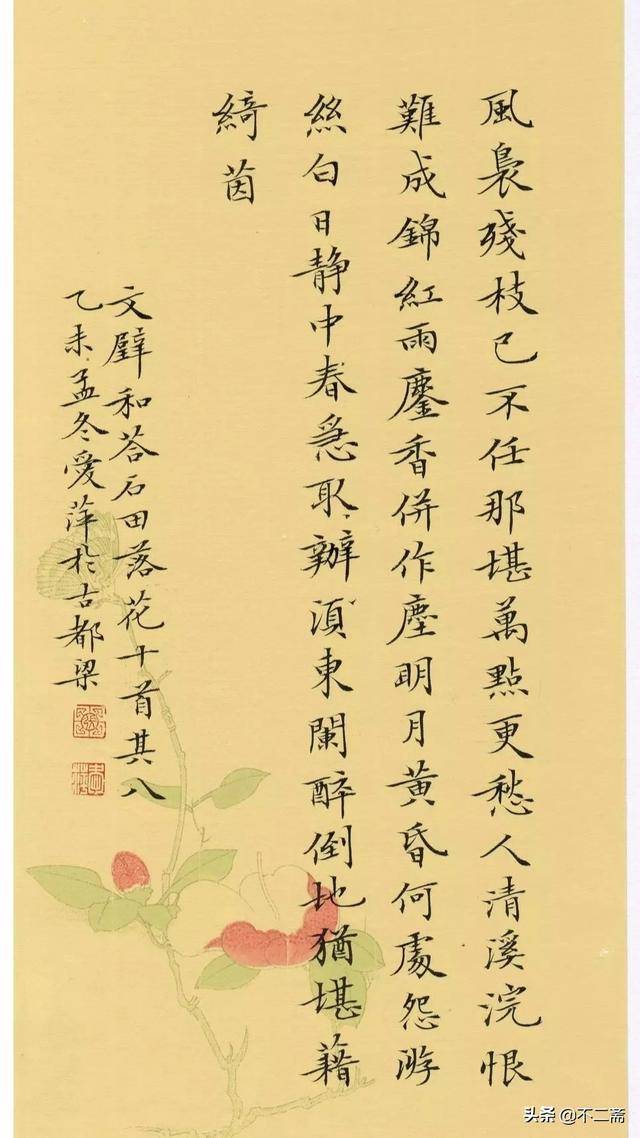 風裊殘枝已不任那堪萬點更愁人清溪浣恨
難成錦紅雨鏖香併作塵明月黃昏何處怨游
絲白日靜中春急取辦湏東闌醉倒地猶堪藉
綺茵
文壁和荅石田落花十首其八
乙未孟冬愛萍於古都梁
头条 @不二斋